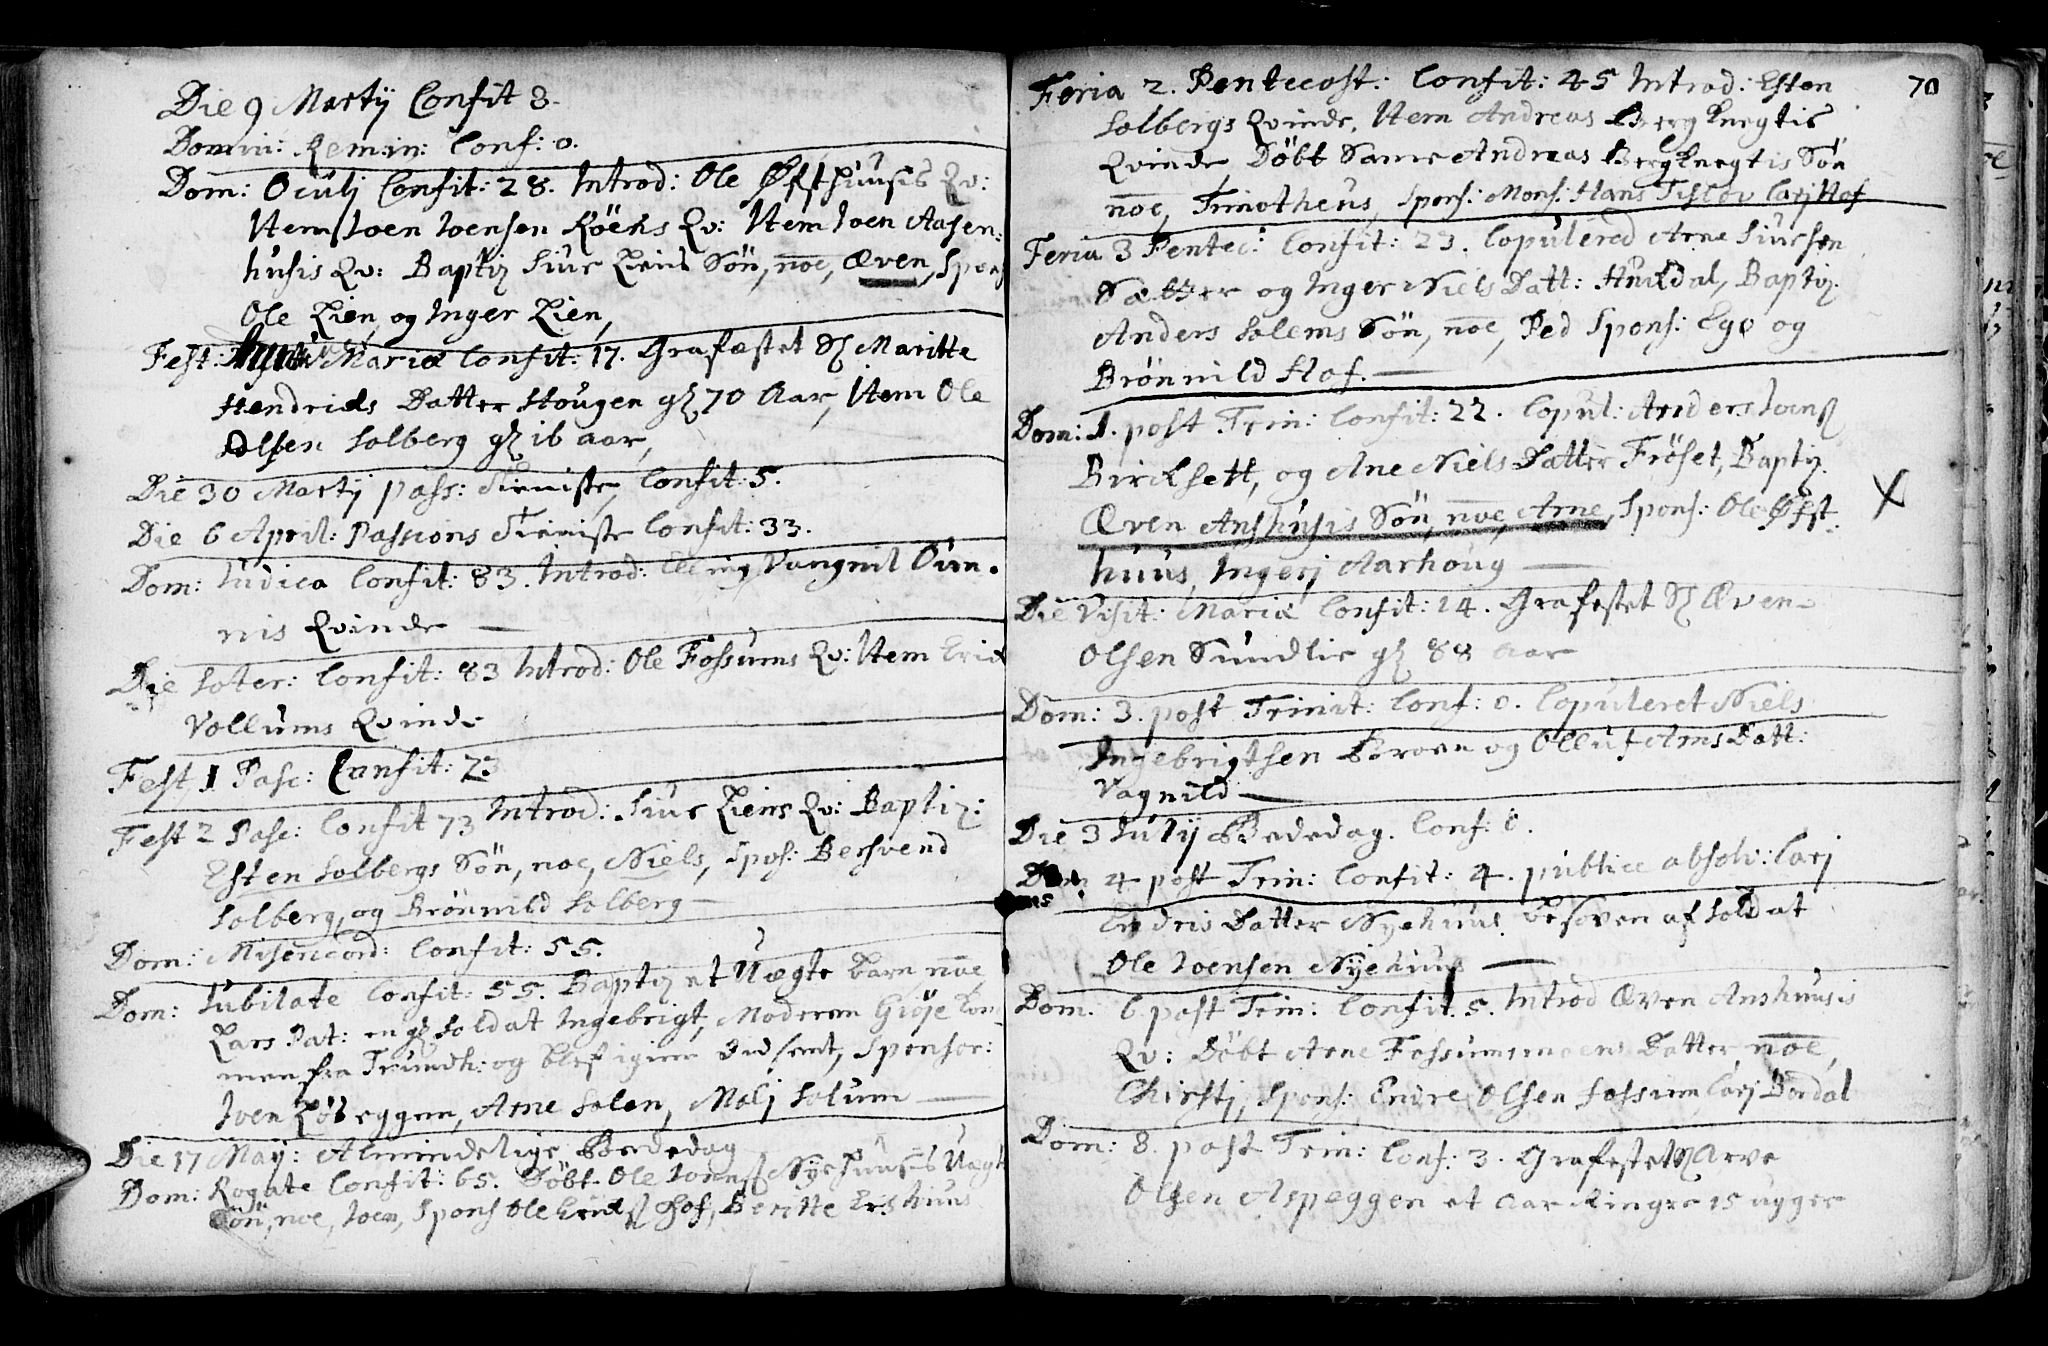 Die 9 Martij Confit 8.
Domin: Remin: Conf: 0.
Dom: Oculj Confit: 28. Introd: Ole Østhuusis Qv:
Item Joen Joensen Röens Qv: Item Joen Aasen:
husis Qv: Baptiz Siur Liens Sön, noe, Æven, Spons
Ole Lien, og Inger Lien,
Fest: Mariæ Confit: 17. Grafæstet Sl Maritte
Hendrichs Datter Hougen gl 70 Aar, Item Ole
Olsen Solberg gl 16 aar,
Die 30 Martij pass: Tieniste, Confit: 5.
Die 6 April: Passions Tieniste Confit: 33.
Dom: Judica Confit: 83. Introd: Elling Vangnil Öien.
nis Qvinde
Die Soter: Confit: 83 Introd: Ole Fossums Qv: Item Erich
Vollums Qvinde
Fest 1 Pasc: Confit: 23
Fest 2 Pasc: Confit 73 Introd: Siur Liens Qv: Baptiz:
Esten Solbergs Sön, noe, Niels, Spos: Bersvend
Solberg, og Brönnild Solberg
Dom: Misericord: Confit: 55.
Dom: Jubilate Confit: 55. Baptiz et Uægte barn, noe
Lars Pat: en gl Soldat Ingebrigt, Moderen Giöje kom
men fra Trundh: og blef igien did sent, Sponsor:
Joen Löseggen, Arne Solen, Malj Solum
Die 17 Maij: Almindelige Bededag
Dom: Rogate Confit: 65. Döbt Ole Jonns Nyehuusis Uægt
Sön, noe, Joen, Spons Ole Erichs Hof, Beritte huus
70
Feria 2. Pentecost: Confit: 45 Introd: Esten
Solbergs Qvinde, Item Andreas Bergknegtis
Qvinde, Döbt Same Andreas Bergknegtis Sön
noe, Timotheus, Spons: Mons: Hans Tislov Carj Hof
Feria 3 Pentec: Confit: 23. Copulered Arne Siursen
Sætter og Inger Niels Datt: Huildal, Baptiz.
Anders Solems Sön, noe, Ped Spons: Ego og
Brönnild Hof.
Dom: 1. post Trin: Confit: 22. Copul: Anders Joens
Birchsett, og Ane Niels Datter Fröset, Baptiz.
Æven Anshusis Sön, noe, Arne, Spons: Ole Øfst:
huus, Ingerj Aarhoug
X
Die Visit: Mariæ Confit: 14. Grafestet Sl Æven
Olsen Sundlie gl 88 Aar
Dom: 3. post Trinit: Conf: 0. Copuleret Niels
Ingebrigtsen Broen og Olluf Arns Datt:
Vagnild
Die 3 Julij Bededag. Conf: 0.
Dom 4 post Trin: Confit: 4. publice absolv: Carj
Endris Datter Nyehuus, besoven af Soldat
Ole Joensen Nyehuus
Dom. 6. post Trin: Confit. 5. Introd Æven Anshuusis
Qv: Döbt Arne Fossummoens Datter, noe,
Chirstj, Spons: Endre Olsen Fossum Carj Dördal
Dom: 8. post Trin: Conf: 3. Grafestet Sl Arve
Olsen Aspeggen et Aar Ringer 15 ugger